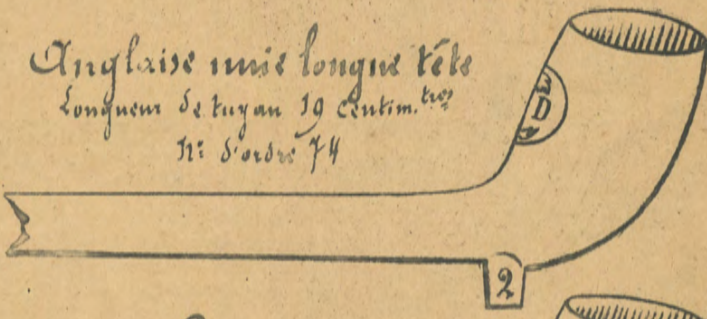 Anglaise unie longue tête
Longueur de tuyau 19 Centim.tres
N° d'ordre 74
D
2